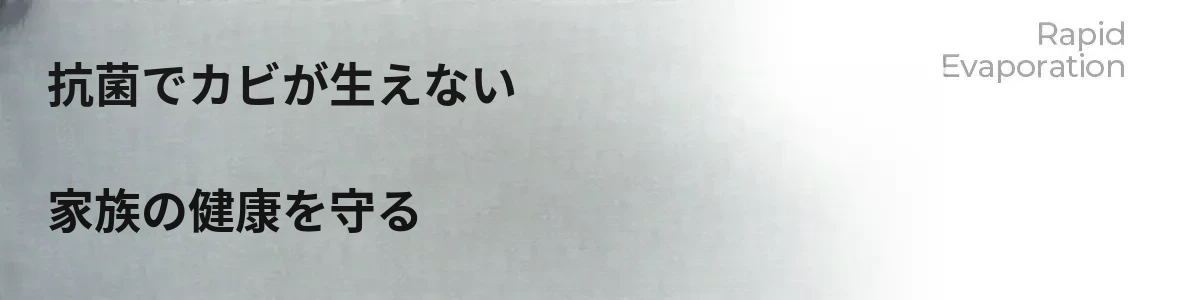 抗菌でカビが生えない
家族の健康を守る
Rapid
Evaporation